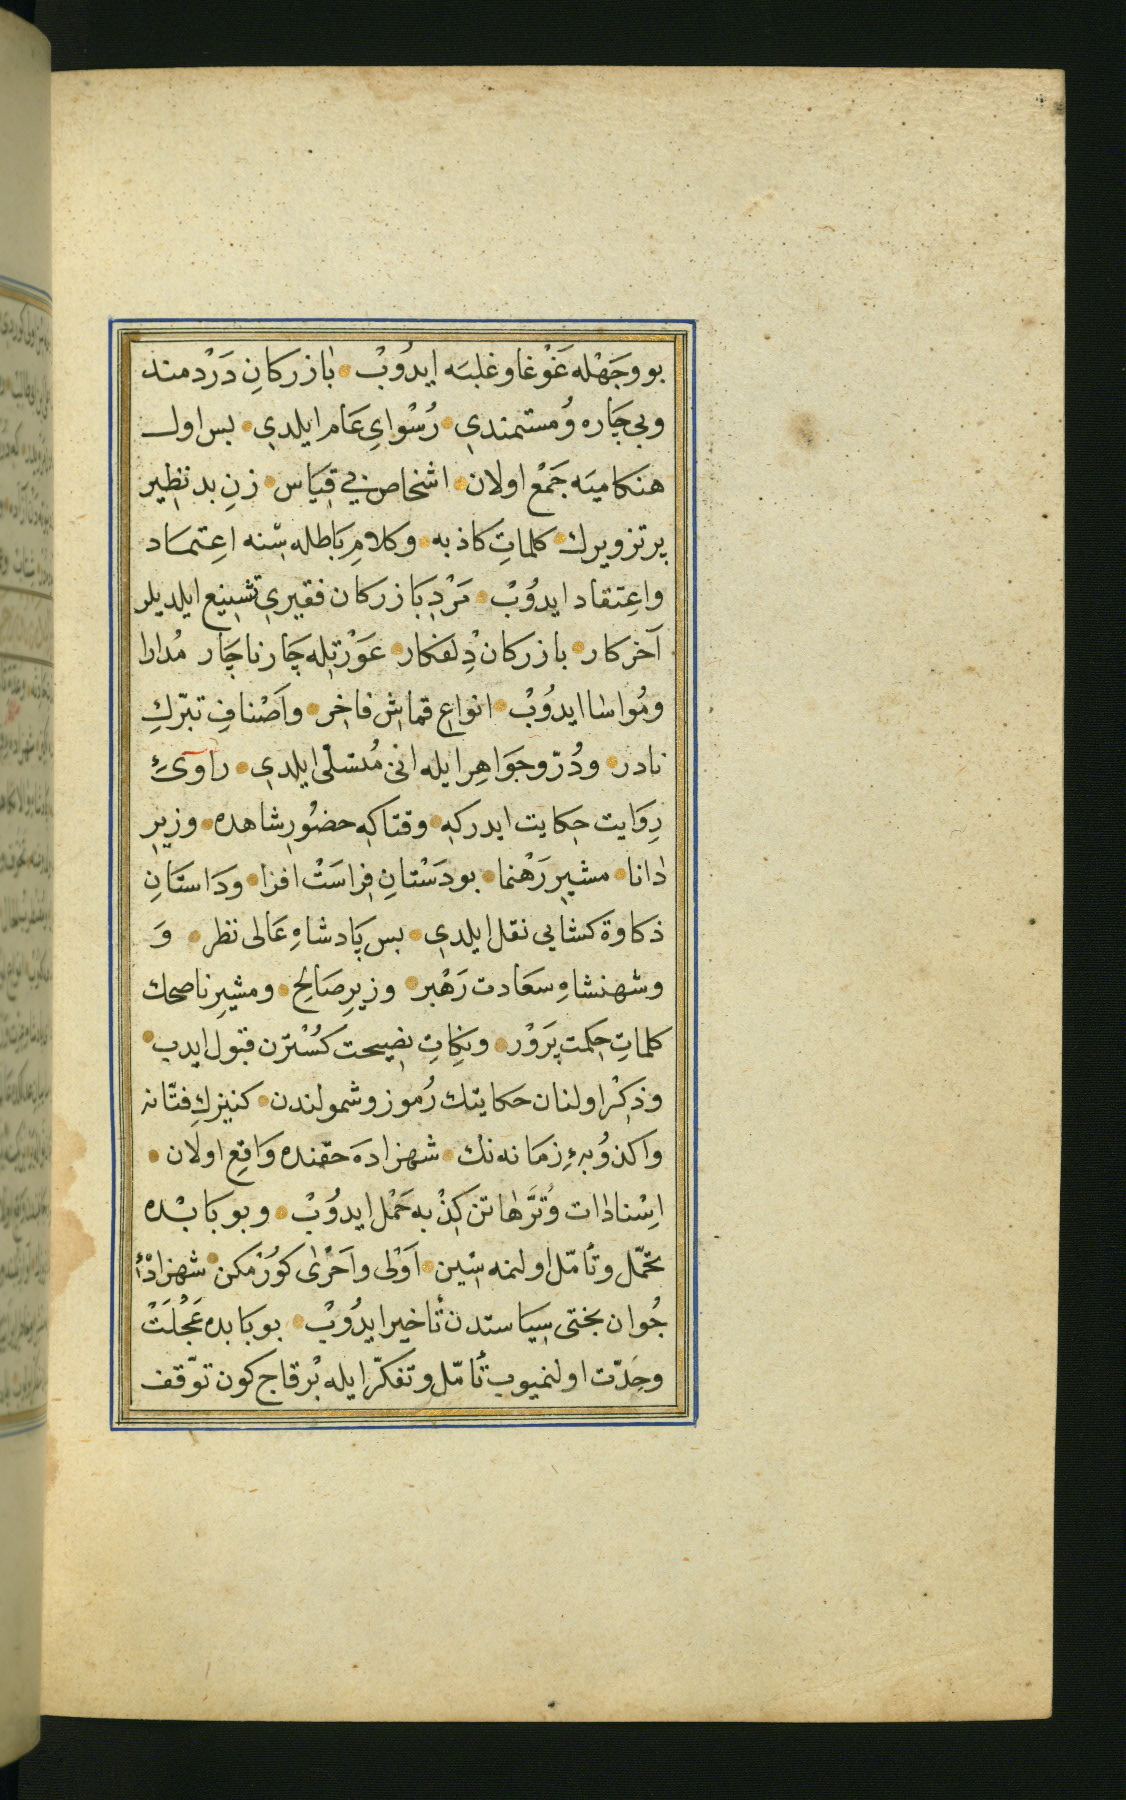 بو وجَهْله غَوْغا و غلبَه ايدُوبْ • بازركانِ دَرْدمند
وبی چَاره وُ مستمندي • رُسْوايِ عَام ايلدي • بس اول
هنكاميَه جَمْع اولان • اشخاص بی قِيَاس • زنِ بد نظير
پر تزويرك • كلماتِ كاذبه • وكلامِ بَاطله سِنه اعِتمَاد
واعِتقاد ايدُوبْ • مَرْدِ بَازركان فقيري تشنيع ايلديلر
آخر كار • بازركان دِْلفكار • عَوْرتِله چَار ناچَار مُدارا
ومُواسا ايدُوبْ • انواعِ قماشِ فاخِر • واَصْنافِ تبرّكِ
نادر • ودُرّ وجَوَاهِر ايله انی مُتسلّی ايلدي • راویٔ
رِوَايت حِكايت ايدركِه • وقتاكِه حضوُرِ شاهده • وزيرِ
دانا • مشيرِ رَهْنما • بو دَسْتانِ فِراسَتْ افزا • ودَاستَانِ
ذكاوة كشايی نقل ايلدي • بس پَادشاهِ عَالی نظر • وَ
وشهنشاهِ سعَادت رَهْبر • وزيرِ صَالِح • ومشيرِ ناصحك
كلماتِ حِكمت پَرَوْر • ونِكاتِ نصِيحت كُسْترن قبول ايدب •
وذكِرْ اولنان حكايتك رُموز وشمولندن • كنيزكِ فتّانه
واكذوُبهءِ زمَانه نك • شهزادهَ حقنده وَاقِع اولان •
اِسْنادات وُ تُرَّهاتن كِذْبه حَمْل ايدوُبْ • وبو بَابْده
تحمّل وتأمّل اولنمه سِْين • اَوْلی واَحْرٰی كورُمكن • شهزادۀْ
جُوان بختی سِيَاستدن تأخير ايدُوبْ • بو بَابده عَجْلَتْ
وحِدّت اولنميوب تأمّل وتفكرّ ايله بْر قاچ كون توّقف